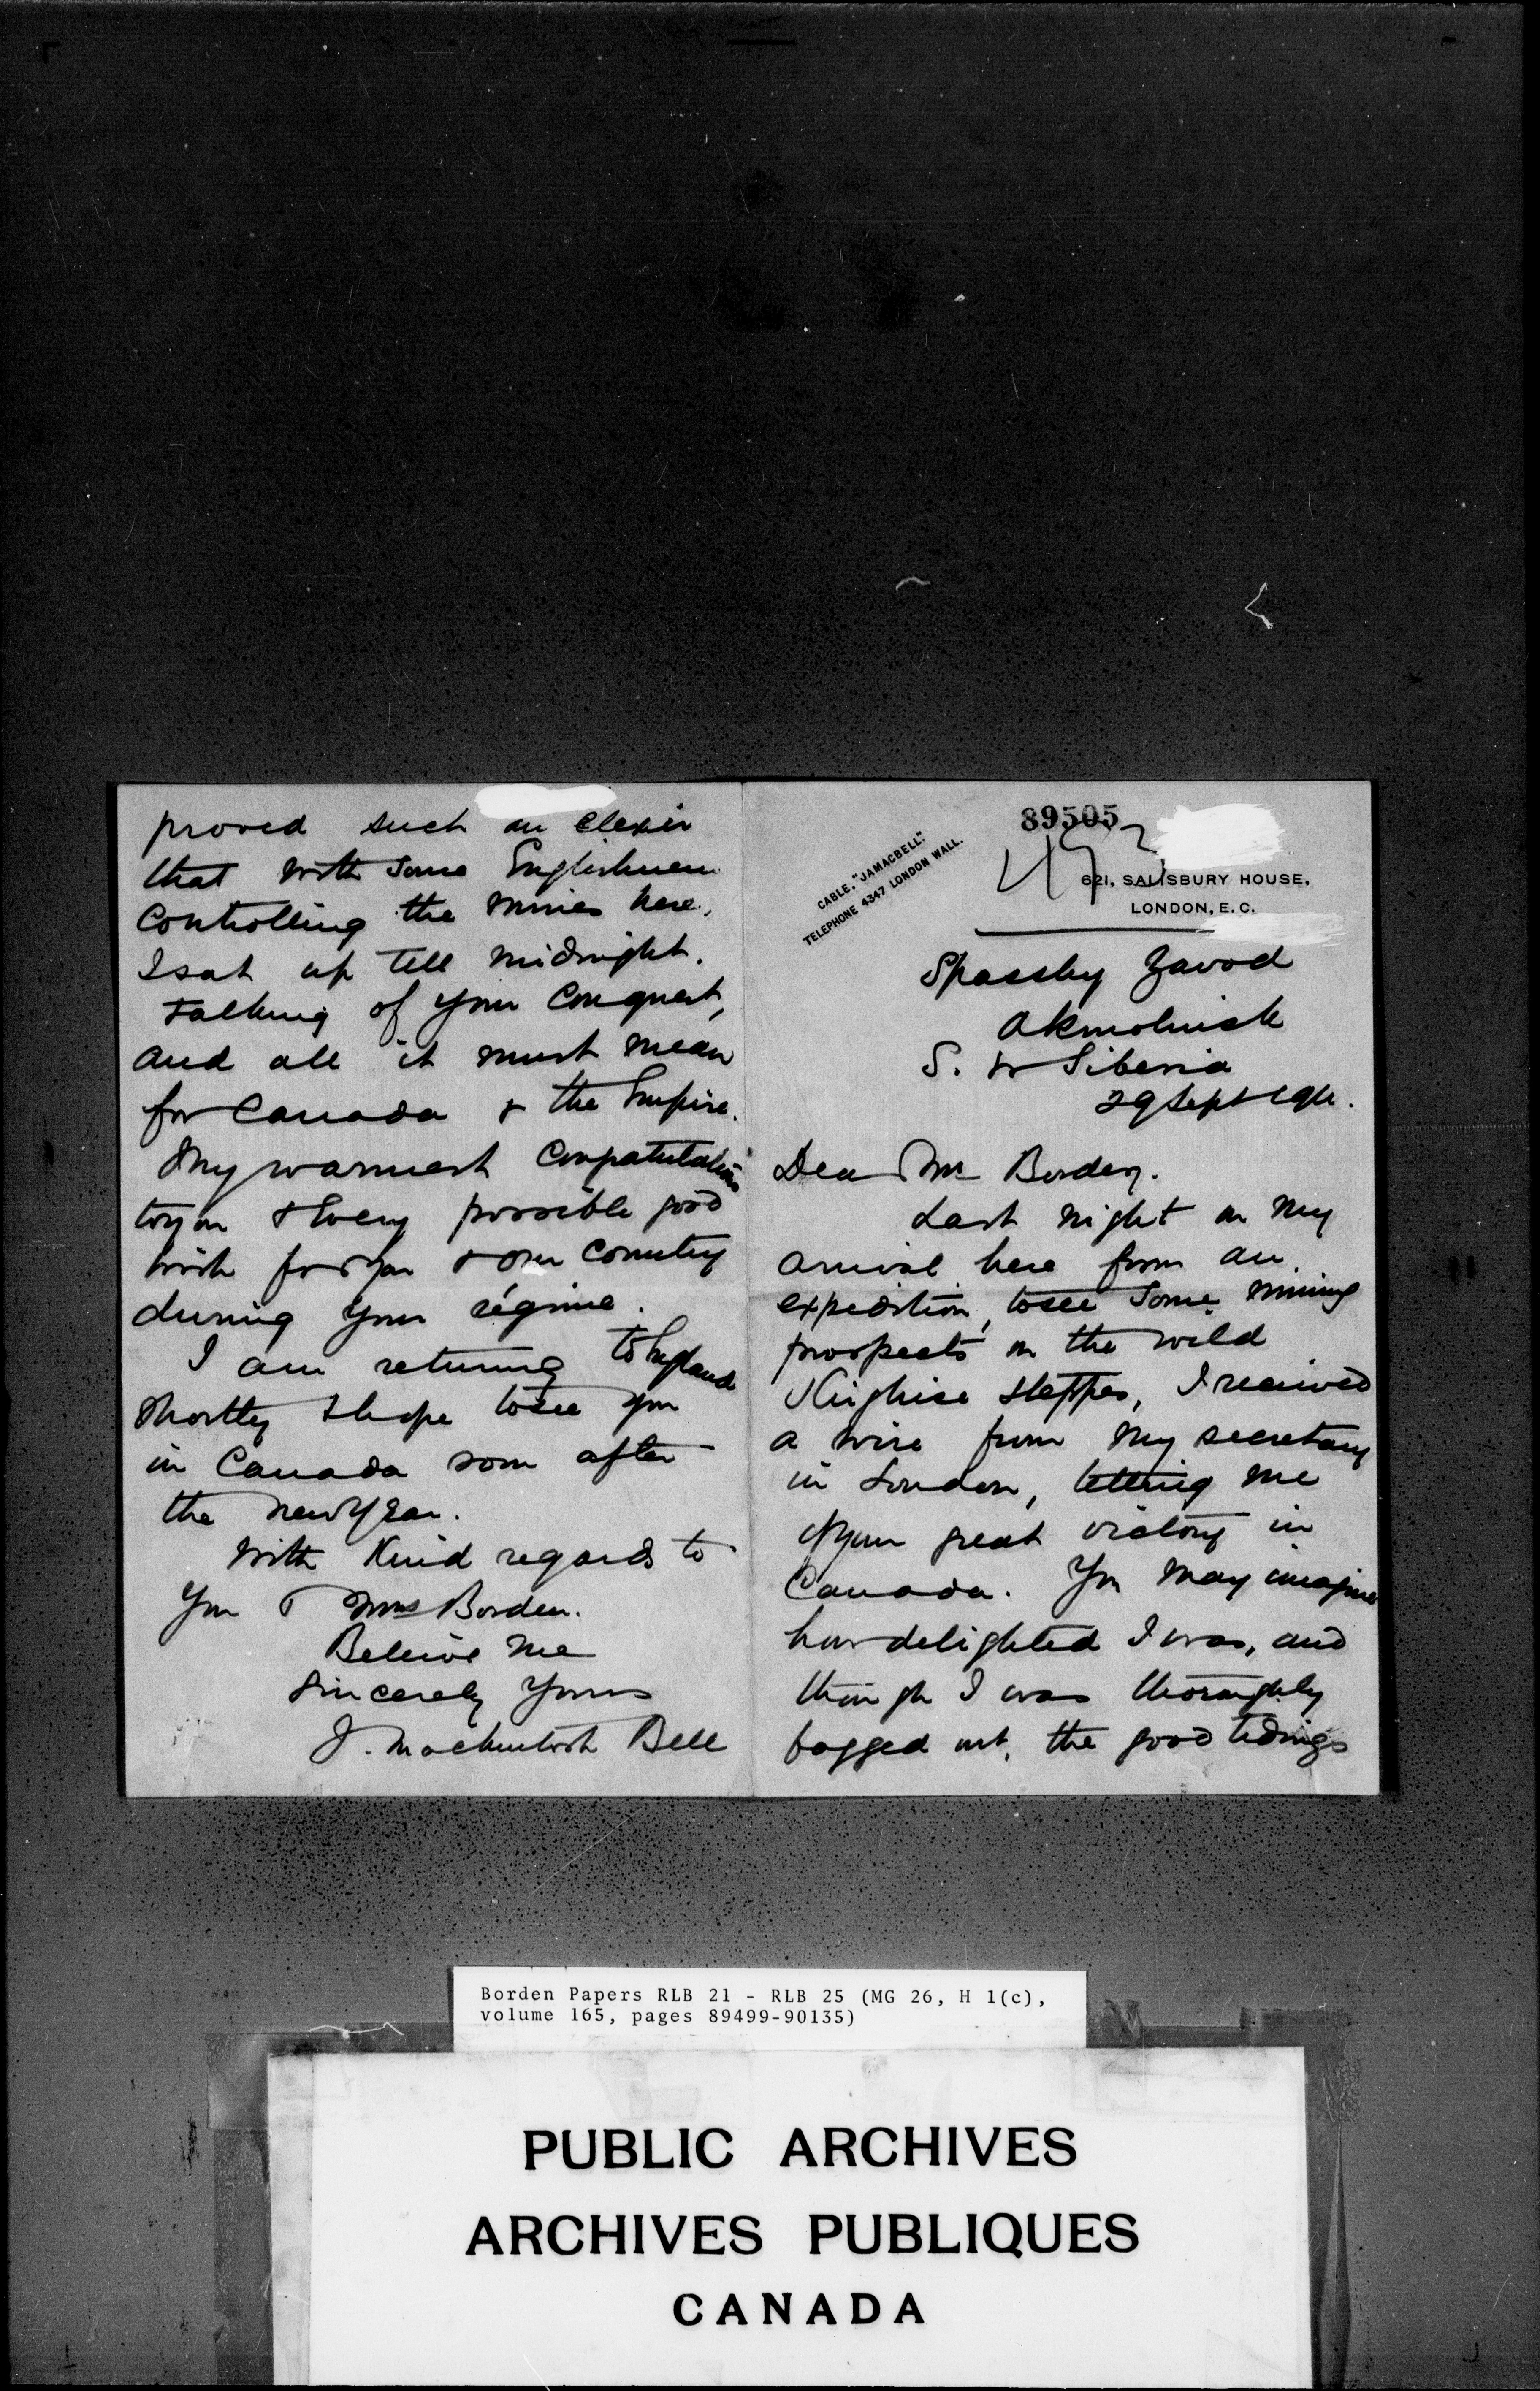 89505
CABLE, "JAMACBELL."
TELEPHONE 4347 LONDON WALL.
621, SALISBURY HOUSE,
LONDON, E.C.
Spassky Zavod
Akmolinsk
S. W Siberia
29 Sept 1911.
Dear Mr Borden.
Last night on my
arrival here from an
expedition, to see some mining
prospects on the wild
Kirghise steppes, I received
a wire from my secretary
in London, telling me
of your great victory in
Canada. You may imagine
how delighted I was, and
though I was thoroughly
fagged out, the good tidings
proved such an elexir
that with some Englishmen
controlling the mines here,
I sat up till midnight.
talking of your conquest,
and all it must mean
for Canada & the Empire.
My warmest congratulations
to you & every possible good
wish for you & our country
during your régime.
I am returning to England
shortly & hope to see you
in Canada soon after
the new year.
With kind regards to
you & Mrs Borden.
Beleive me
Sincerely yours
J. Mackintosh Bell
Borden Papers RLB 21 - RLB 25 (MG 26, H 1(c),
volume 165, pages 89499-90135)
PUBLIC ARCHIVES
ARCHIVES PUBLIQUES
CANADA